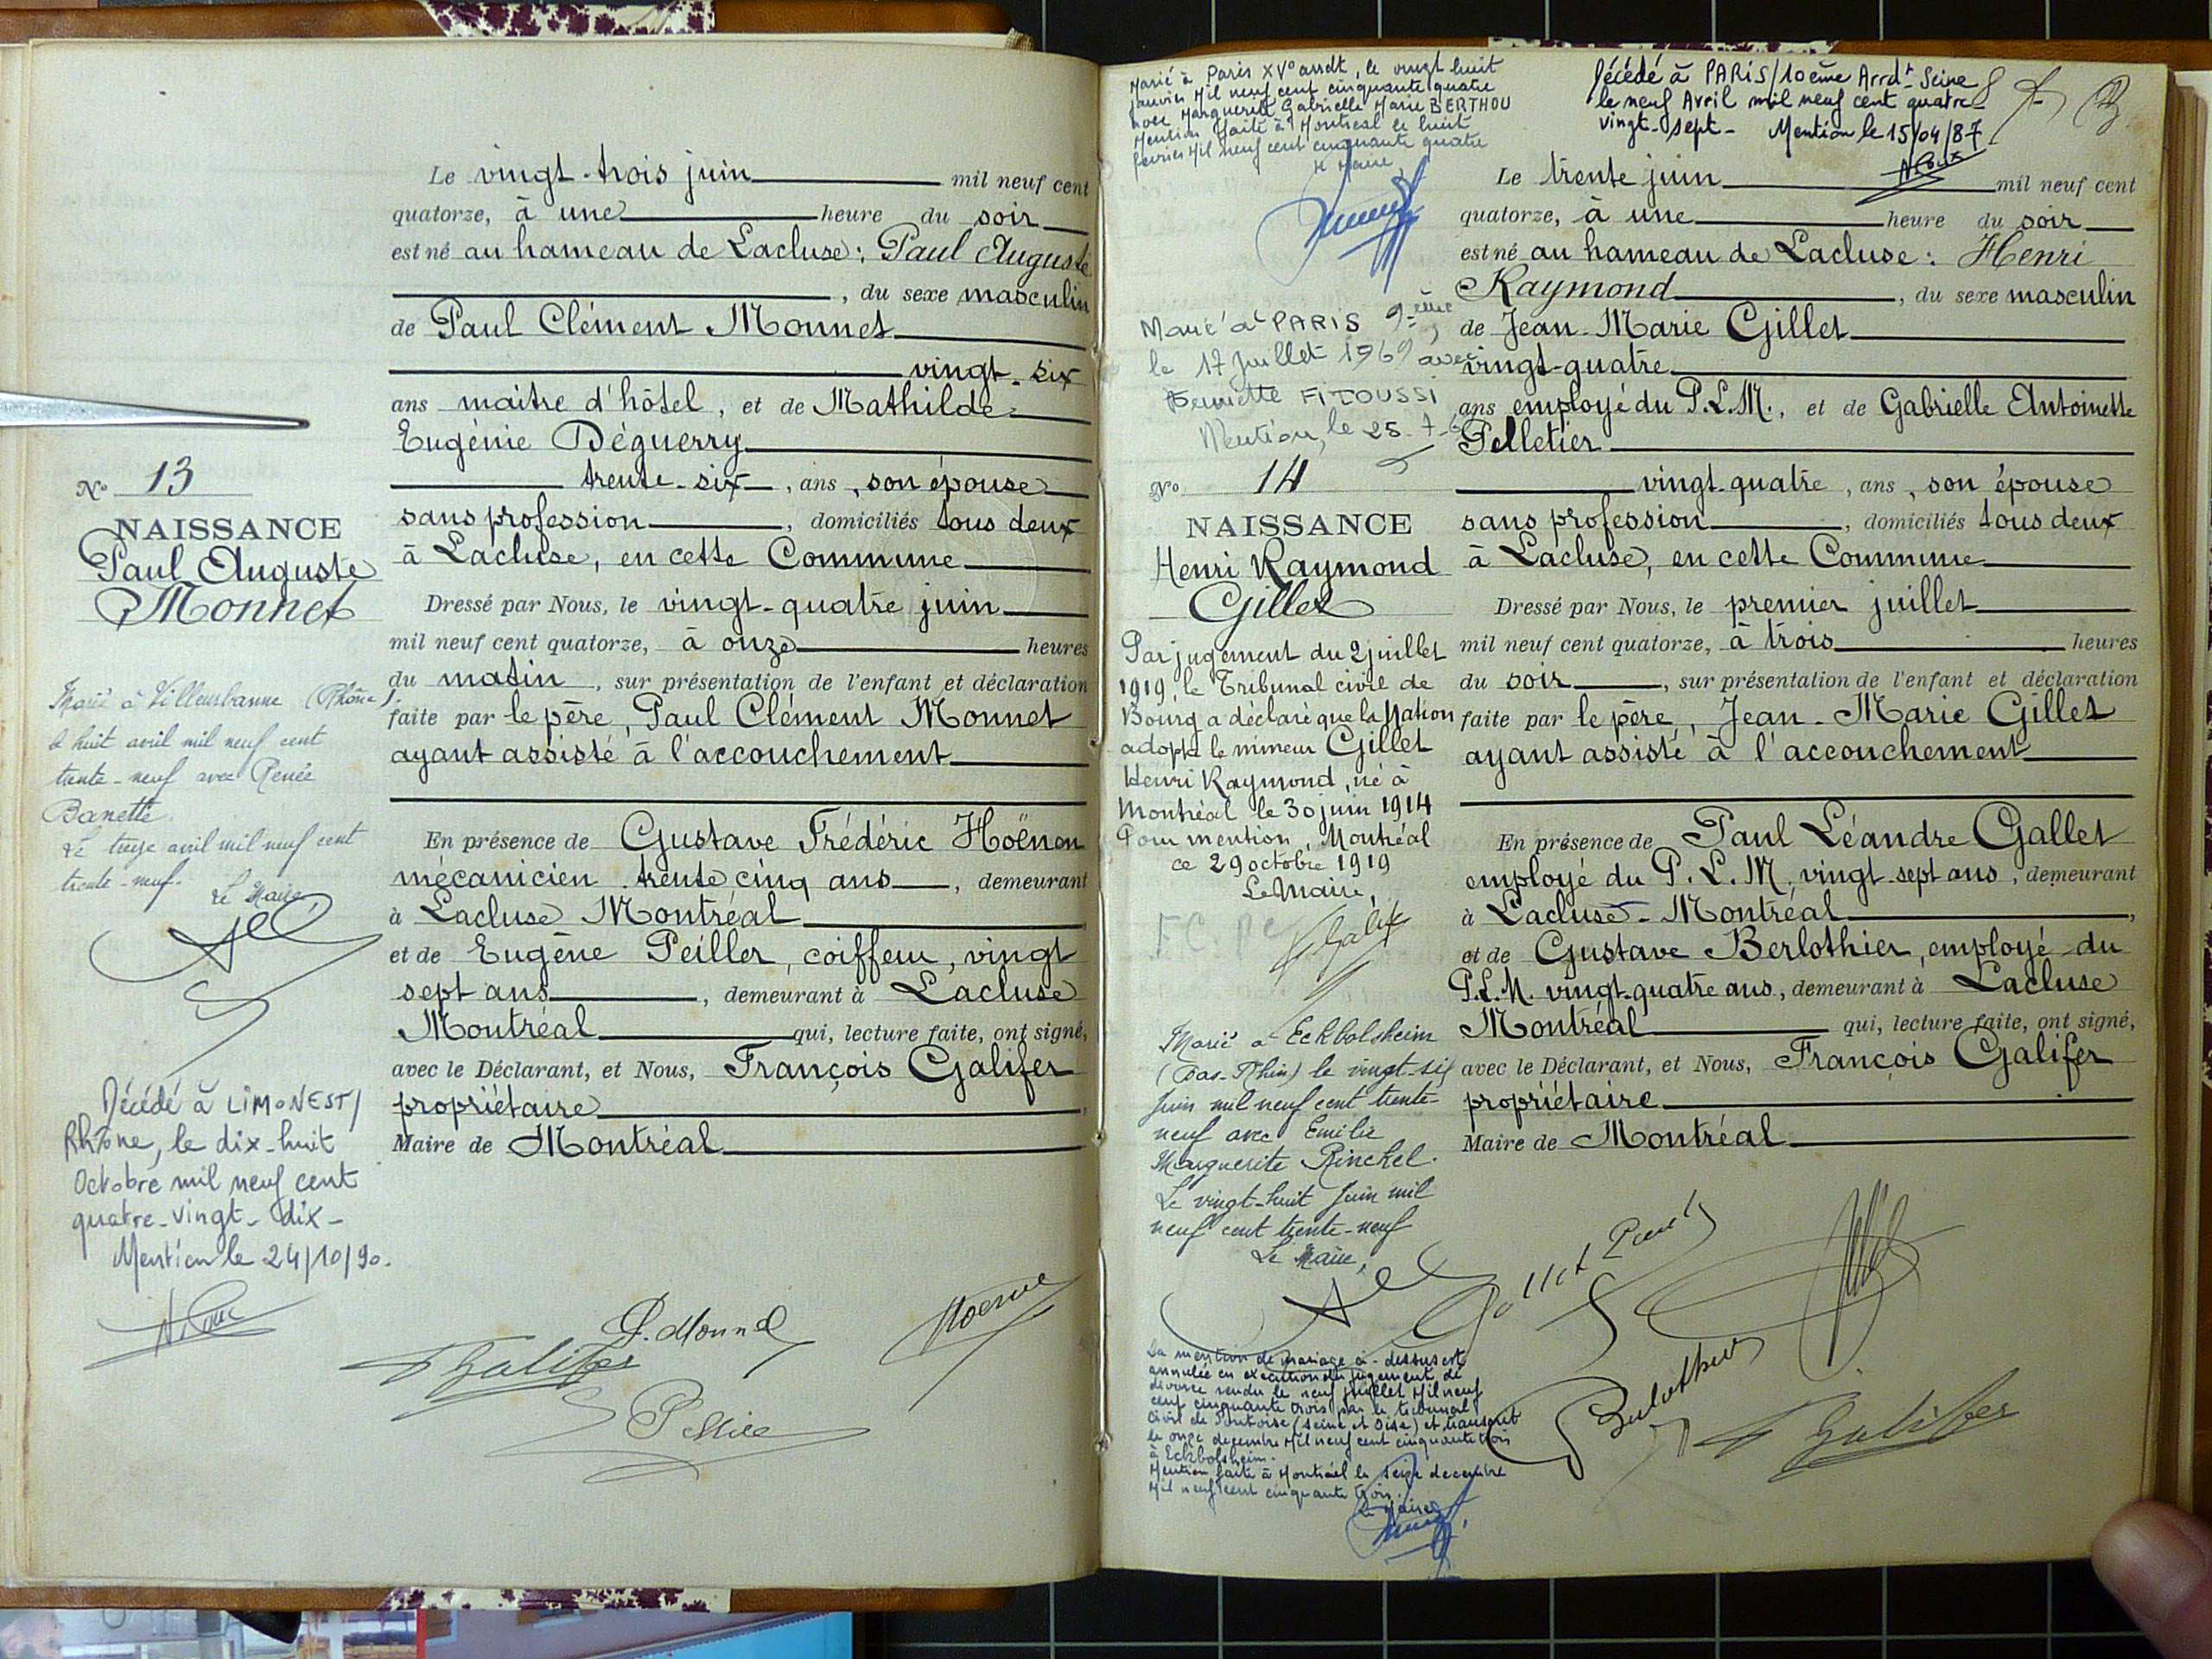 Le vingt-trois juin mil neuf cent
quatorze, à une heure du soir
est né au hameau de Lacluse : Paul Auguste
, du sexe masculin
de Paul Clément Monnet
vingt-six
ans maitre d'hôtel, et de Mathilde
Eugénie Déguerry
trente-six, ans, son épouse
sans profession, domiciliés tous deux
à Lacluse, en cette Commune
Dressé par Nous, le vingt-quatre juin
mil neuf cent quatorze, à onze heures
du matin, sur présentation de l'enfant et déclaration
faite par le père, Paul Clément Monnet
ayant assisté à l'accouchement
En présence de Gustave Frédéric Hoënen
mécanicien trente cinq ans, demeurant
à Lacluse Montréal
et de Eugène Peiller, coiffeur, vingt
sept ans, demeurant à Lacluse
Montréal qui, lecture faite, ont signé,
avec le Déclarant, et Nous, François Galifer
propriétaire
Maire de Montréal
No 13
NAISSANCE
Paul Auguste
Monnet
Marié à Villeurbanne (Rhône)
le huit avril mil neuf cent
trente-neuf avec Renée
Banette.
Le treize avril mil neuf cent
trente-neuf. Le Maire
Décédé à LIMONEST/
Rhône, le dix-huit
Octobre mil neuf cent
quatre-vingt-dix-
Mention le 24/10/90.
P. Monnet
Galifer
Marié à Paris XVº arrdt, le vingt huit
janvier Mil neuf cent cinquante quatre
avec Marguerite Gabrielle Marie BERTHOU
Mention faite à Montréal le huit
février Mil neuf cent cinquante quatre
Le Maire
Décédé à PARIS/10ème Arrdt-Seine
le neuf Avril mil neuf cent quatre-
vingt-sept- Mention le 15/04/87
Marié à PARIS 9-ème,
le 17 Juillet 1969 avec
FITOUSSI
Mention, le 25-7-
No 14
NAISSANCE
Henri Raymond
Gillet
Par jugement du 2 juillet
1919, le Tribunal civil de
Bourg a déclaré que la Nation
adopte le mineur Gillet
Henri Raymond, né à
Montréal le 30 juin 1914
Pour mention, Montréal
ce 29 octobre 1919
Le Maire,
Marié à Eckbolsheim
(Bas-Rhin) le vingt-six
Juin mil neuf cent trente-
neuf avec Emilie
Marguerite Rinckel.
Le vingt-huit Juin mil
neuf cent trente-neuf
Le Maire,
La mention de mariage ci-dessus est
annulée en exécution du jugement de
divorce rendu le neuf juillet Mil neuf
cent cinquante trois par le tribunal
civil de Pontoise (Seine et Oise) et transcrit
le onze decembre Mil neuf cent cinquante trois
à Eckbolsheim.
Mention faite à Montréal le seize decembre
Mil neuf cent cinquante trois.
Le Maire
Le trente juin mil neuf cent
quatorze, à une heure du soir
est né au hameau de Lacluse : Henri
Raymond, du sexe masculin
de Jean-Marie Gillet
vingt-quatre
ans employé du P.L.M., et de Gabrielle Antoinette
Pelletier
vingt-quatre, ans, son épouse
sans profession, domiciliés tous deux
à Lacluse, en cette Commune
Dressé par Nous, le premier juillet
mil neuf cent quatorze, à trois heures
du soir, sur présentation de l'enfant et déclaration
faite par le père, Jean-Marie Gillet
ayant assisté à l'accouchement
En présence de Paul Léandre Gallet
employé du P.L.M, vingt-sept ans, demeurant
à Lacluse-Montréal,
et de Gustave Berlothier, employé du
P.L.M. vingt-quatre ans, demeurant à Lacluse
Montréal qui, lecture faite, ont signé,
avec le Déclarant, et Nous, François Galifer
propriétaire
Maire de Montréal
Gallet Paul
Berlothier
Galifer